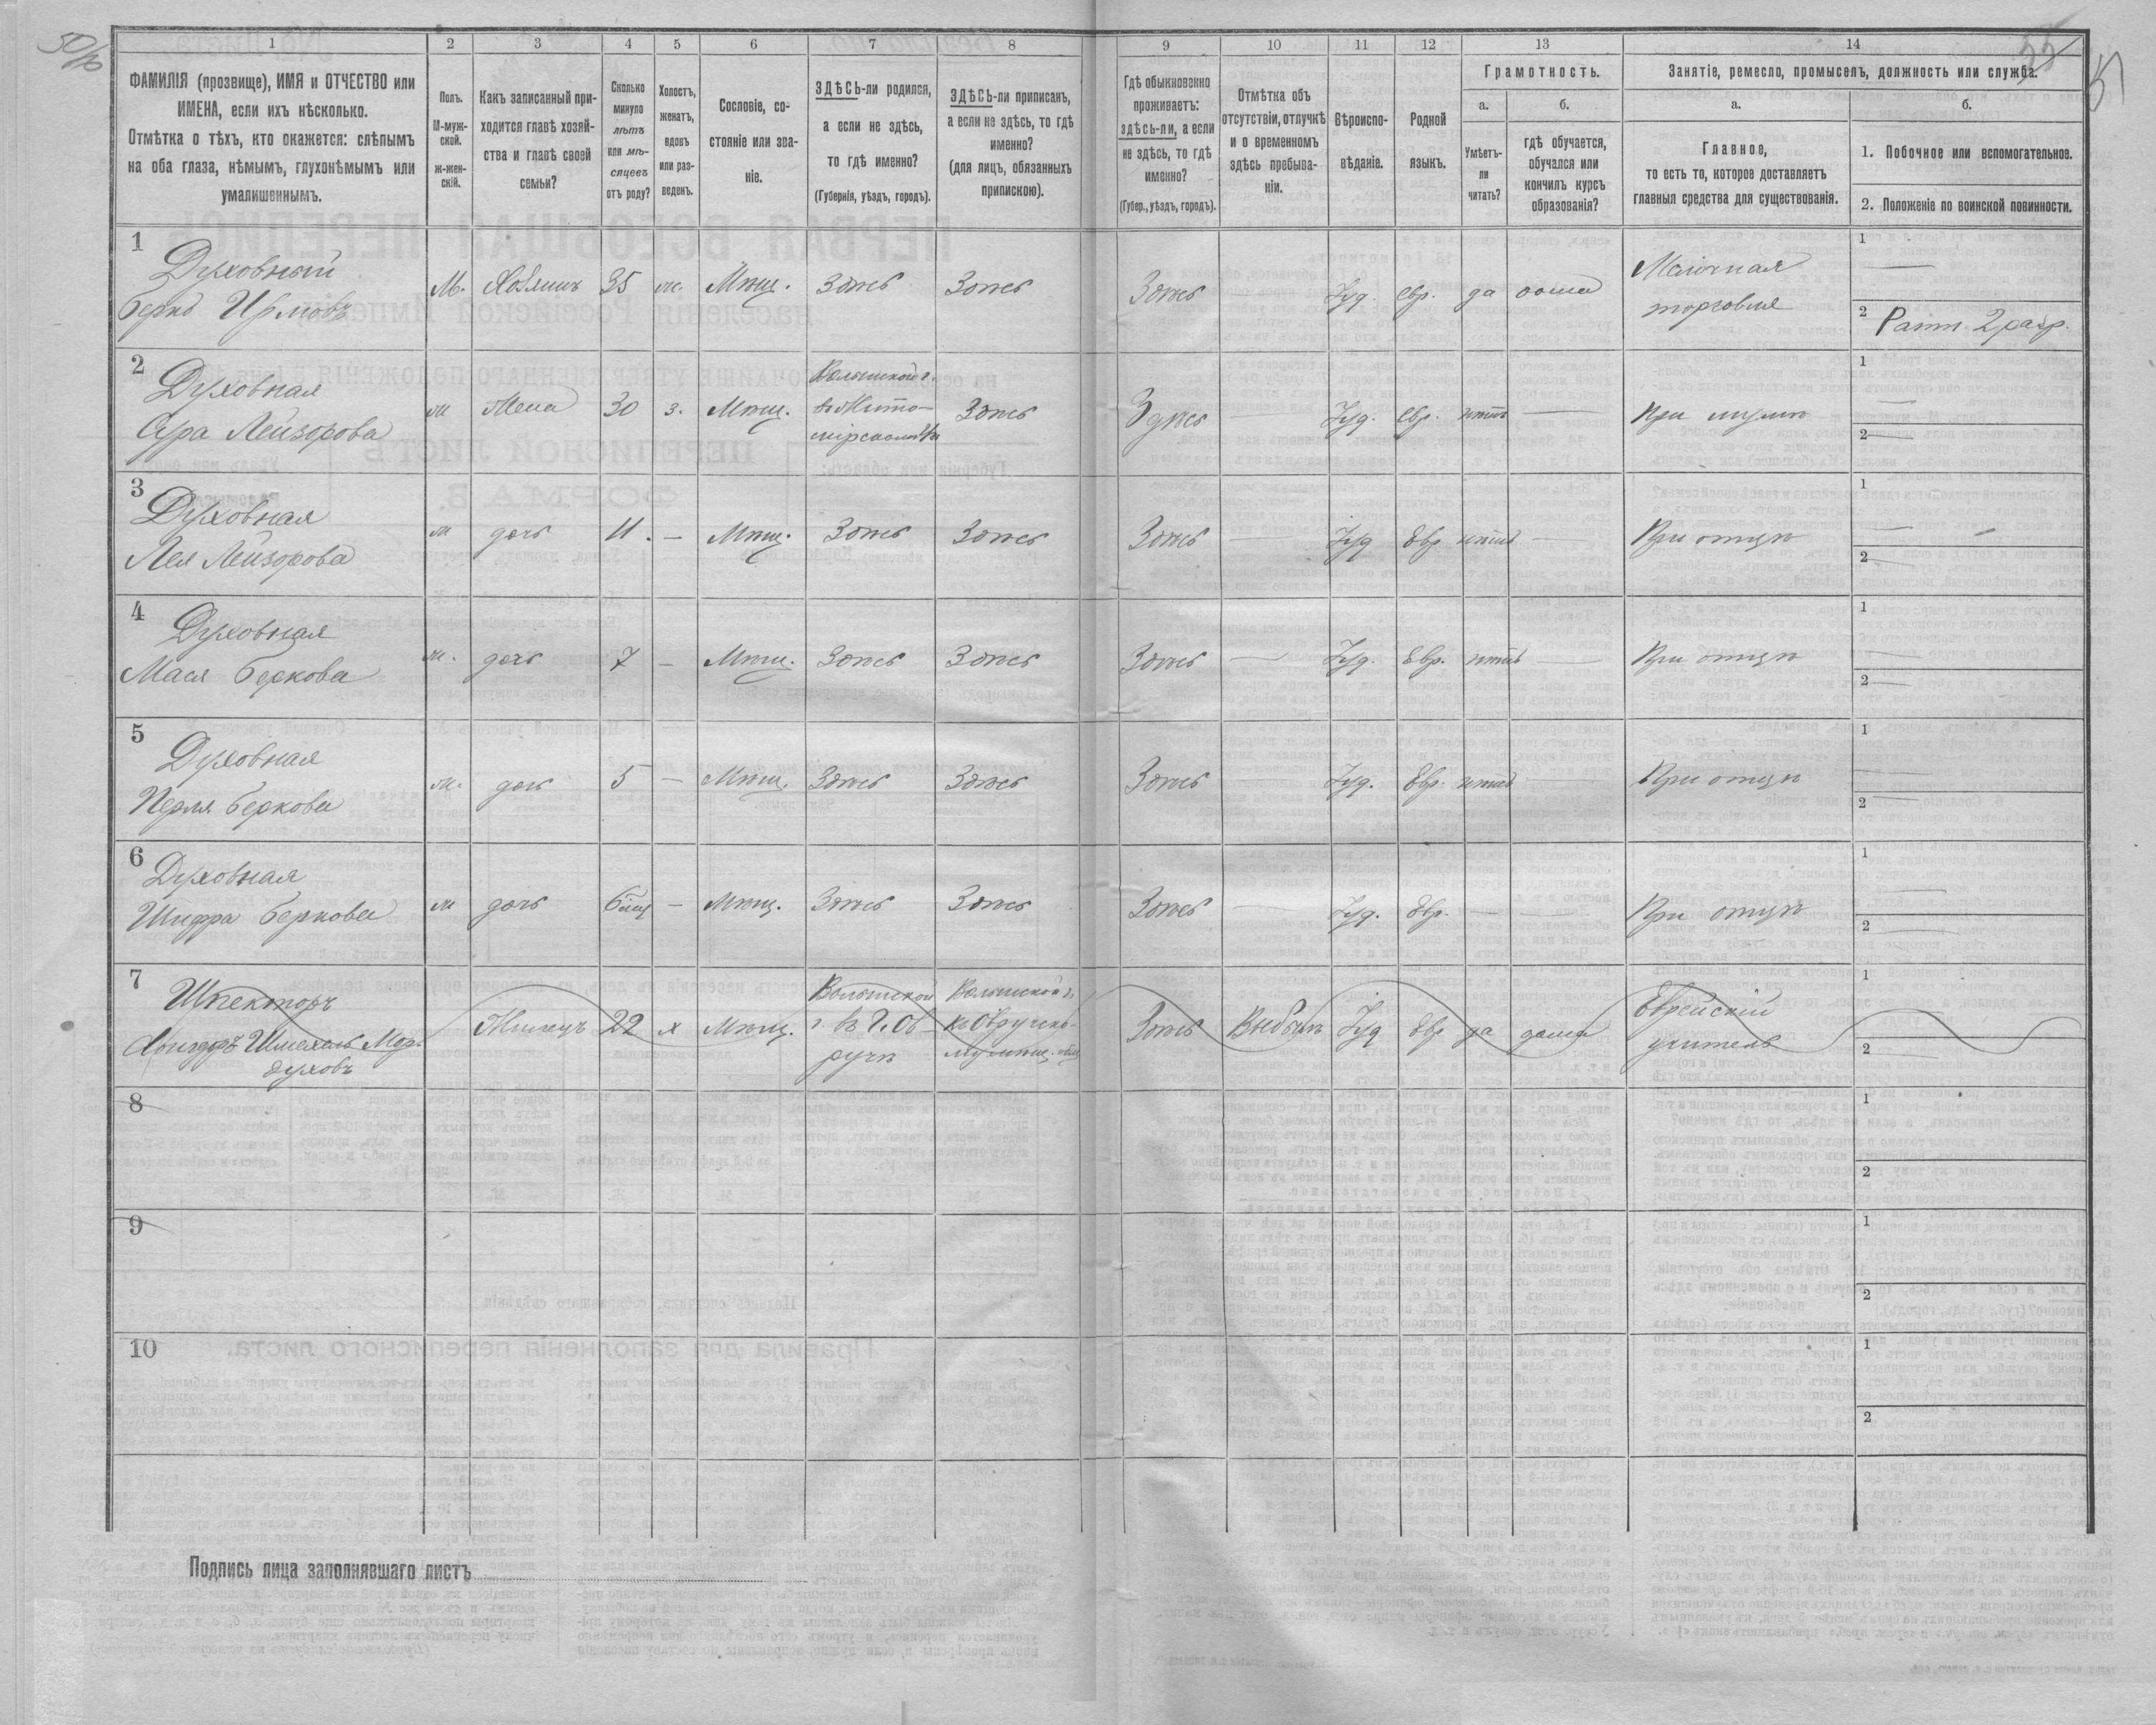 50/16
55
51
1
2
3
4
5
6
7
8
9
10
11
12
13
14
ФАМИЛІЯ (прозвище), ИМЯ и ОТЧЕСТВО или
ИМЕНА, если ихъ нѣсколько.
Отмѣтка о тѣхъ, кто окажется: слѣпымъ
на оба глаза, нѣмымъ, глухонѣмымъ или
умалишеннымъ.
Полъ.
М-муж-
ской.
ж-жен-
скій.
Какъ записанный при-
ходится главѣ хозяй-
ства и главѣ своей
семьи?
Сколько
минуло
лѣтъ
или мѣ-
сяцевъ
отъ роду?
Холостъ,
женатъ,
вдовъ
или раз-
веденъ.
Сословіе, со-
стояніе или зва-
ніе.
ЗДѢСЬ-ли родился,
а если не здѣсь,
то гдѣ именно?
(Губернія, уѣздъ, городъ).
ЗДѢСЬ-ли приписанъ,
а если не здѣсь, то гдѣ
именно?
(для лицъ, обязанныхъ
припискою).
Гдѣ обыкновенно
проживаетъ:
здѣсь-ли, а если
не здѣсь, то гдѣ
именно?
(Губер., уѣздъ, городъ).
Отмѣтка объ
отсутствіи, отлучкѣ
и о временномъ
здѣсь пребыва-
ніи.
Вѣроиспо-
вѣданіе.
Родной
языкъ.
Грамотность.
а.
б.
Умѣетъ-
ли
читать?
гдѣ обучается,
обучался или
кончилъ курсъ
образованія?
Занятіе, ремесло, промыселъ, должность или служба.
а.
б.
Главное,
то есть то, которое доставляетъ
главныя средства для существованія.
1. Побочное или вспомогательное.
2. Положеніе по воинской повинности.
1
Духовный
Берко
М.
Хозяинъ
35
ж.
Мѣщ.
Здѣсь
Здѣсь
Здѣсь
—
Іуд.
евр.
да
дома
Мелочная
торговля
1 —
2 Ратн. 2 разр.
2
Духовная
Сура Лейзорова
ж
Жена
30
з.
Мѣщ.
Волынской г.
въ Жито-
мірскомъ
Здѣсь
Здѣсь
—
Іуд.
евр.
нѣтъ
—
При мужѣ
1 —
2 —
3
Духовная
Лея Лейзорова
ж
дочь
11.
—
Мѣщ.
Здѣсь
Здѣсь
Здѣсь
—
Іуд
Евр
нѣтъ
—
При отцѣ
1 —
2 —
4
Духовная
Мася Беркова
ж.
дочь
7
—
Мѣщ.
Здѣсь
Здѣсь
Здѣсь
—
Іуд.
Евр.
нѣтъ
—
При отцѣ
1 —
2 —
5
Духовная
Перля Беркова
ж.
дочь
5
—
Мѣщ.
Здѣсь
Здѣсь
Здѣсь
—
Іуд.
Евр.
нѣтъ
При отцѣ
1 —
2 —
6
Духовная
Шифра Беркова
ж
дочь
—
Мѣщ.
Здѣсь
Здѣсь
Здѣсь
—
Іуд.
Евр.
—
—
При отцѣ
1 —
2 —
7
Шпекторъ
Мор-
духовъ
Жилецъ
22
х
Мѣщ.
Волынской
г. въ г. Ов-
ручѣ
Волынской г.
къ Овручско-
му мѣщ. общ
Здѣсь
Выбылъ
Іуд
Евр
да
дома
Еврейскій
учитель
1
2
8
1
2
9
1
2
10
1
2
Подпись лица заполнявшаго листъ